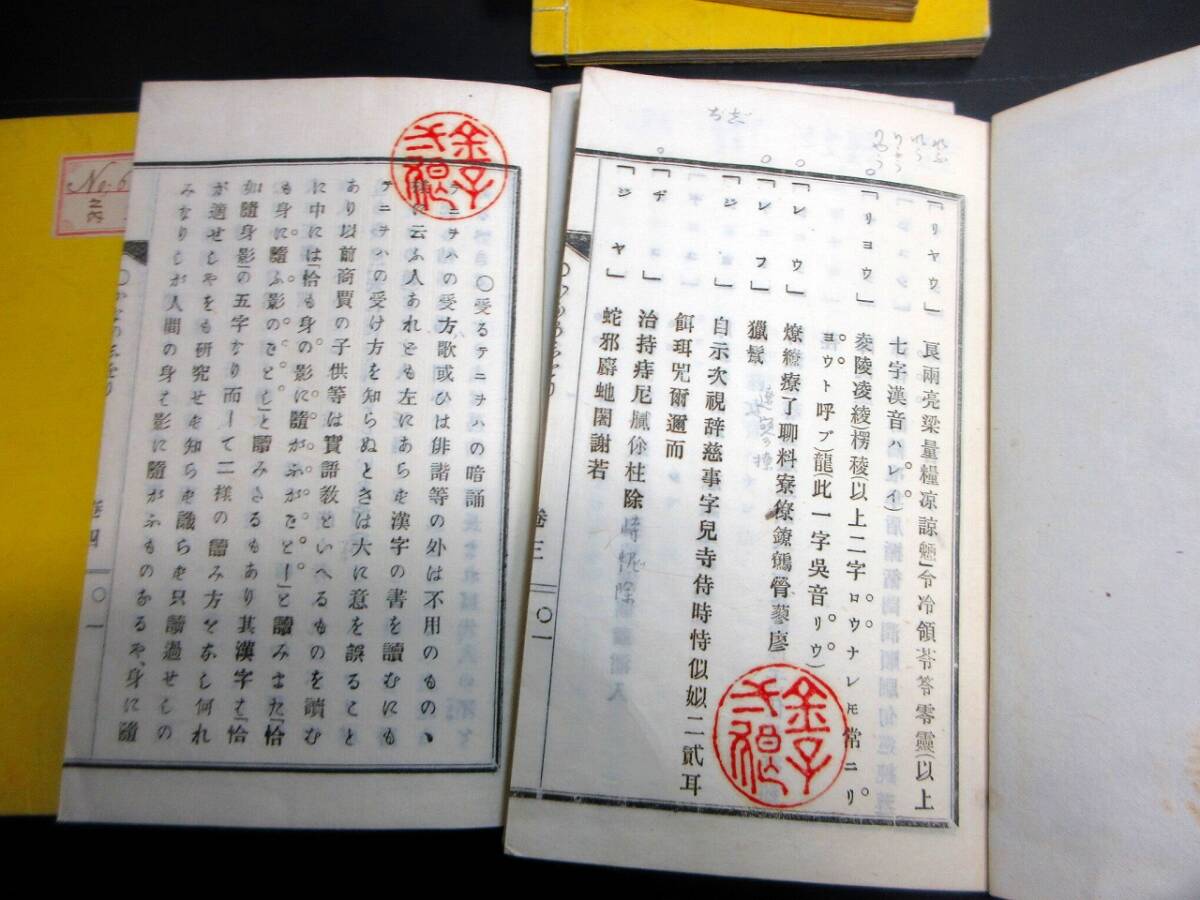 「リヤウ」 良兩亮梁量糧凉諒魎」令冷領苓笭零靈(以上
七字漢音ハレイ)
「リヨウ」 夌陵凌綾)楞稜(以上二字ロウナレ𪜈常ニリ
ヨウト呼ブ)龍此一字吳音リウ)
「レウ」 燎繚療了聊料寮僚鐐鷯膋蓼廖
「レフ」 獵鬣
「ジ」 自示次視辞慈事字兒寺侍時恃似姒二貳耳
餌珥咒爾邇而
「ヂ」 治持痔尼膩 除
「ジヤ」 蛇邪麝 闍謝若
卷三
〇一
〇受るテニヲハの暗誦
テニヲハの受方歌或ひは俳諧等の外は不用のもの丶
に云ふ人あれども左にあらを漢字の書を讀むにも
テニヲハの受け方を知らぬときは大に意を誤ること
あり以前商賈の子供等は實語敎といへるものを讀む
に中には「恰も身の影に隨がふがごとし」と讀みまた「恰
も身に隨ふ影のごとし」と讀みさるもあり其漢字も「恰
如隨身影」の五字なり而して二樣の讀み方をなし何れ
が適せしやをも研究せを知らを識らを只讀過せしの
みなりしが人間の身を影に隨がふものなるや、身に隨
卷四
〇一
No. 6